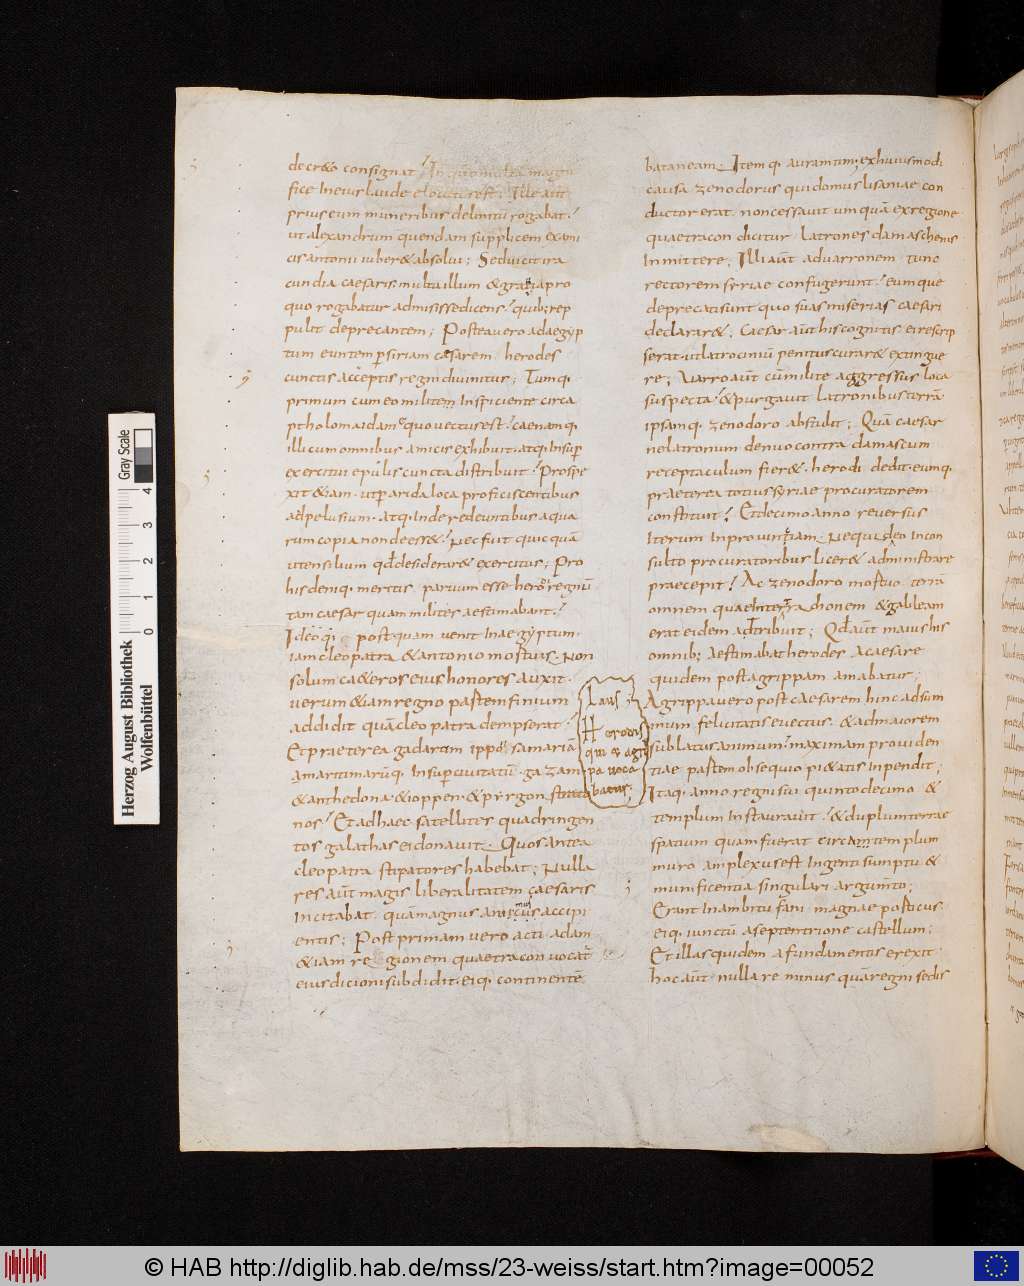 decr&o consignat; In quo multa magni
fice in eius laude elocutus est; Ille aut
prius eum muneribus delinitu rogabat;
ut alexandrum quendam supplicem ex ami
cis antonii iuber& absolui; Sed uicit ira
cundia caesaris multa illum & gratia pro
quo rogabatur admisisse dicens; quib; rep
pulit deprecantem; Postea uero ad aegyp
tum euntem p siriam caesarem herodes
cunctis acceptis regni diuinitus; Tumq.
primum cum eo militem inspiciente circa
ptholomaidam quo uectus est; caenamq.
illi cum omnibus amicis exhibuit. atq. insup
exercitui epulis cuncta distribuit; Prospe
xit & iam. ut p arida loca proficiscentibus
ad pelusium. atq. inde redeuntibus aqua
rum copia non dee ss&; Nec fuit quicquā
utensilium qd desiderar& exercitus; Pro
his deniq. meritis paruum esse herodi regnū
tam caesar quam milites aestimabant;
Ideoq. postquam uenit in aegyptum.
iam cleopatra & antonio mostuis. Non
solum ca&eros eius honores auxit.
uerum & iam regno pastem finium
addidit quā cleopatra dempserat;
Et prieterea gadaram ippō samariā
amaritimarūq. insup ciuitatū. gazam
& anthedona. & ioppen. & pyrgon strato
nos; Et ad haec satellites quadringen
tos galathas ei donauit. Quos antea
cleopatra stipatores habebat; Nulla
res aūt magis liberalitatem caesaris
incitabat quā magnus animus accipi
entis; Post primam uero acti adam
& iam regionem quae tracon uocat
eius dicioni subdidit. eiq. continentē
Laus
Herodis
qui & agri
pa uoca
batus;
bataneam. Itemq. auranitim; ex huiusmodi
causa zenodorus qui domus lisaniae con
ductor erat. non cessauit umquā ex regione
quae tracon dicitur latrones damaschenis
inmittere; Illi aūt ad uarronem tunc
rectorem syriae confugerunt; eumque
deprecati sunt quo suas miserias caesari
declarar&; Caesar aūt his cognitis ei rescrip
serat. ut latrociniū penitus curar& extingue
re; Uarro aūt cū milite aggressus loca
suspecta; & purgauit latronibus terrā
ipsamq. zenodoro abstulit; Quā caesar
ne latronum denuo contra damascum
receptaculum fier&. herodi dedit. eumq.
praeterea totius syriae procuratorem
constituit; Et decimo anno reuersus
iterum in prouintiam. Nequid eo incon
sulto procuratoribus licer& administrare
praecepit; Ac zenodoro mostuo terrā
omnem quae inter trachonem & galileam
erat eidem adtribuit; Qd aūt maius his
omnib; aestimabat herodes a caesare
quidem post agrippam amabatur;
Agrippa uero post caesarem hinc ad sum
mum felicitatis euectus. & ad maiorem
sublatus animum; maximam prouiden
tiae pastem obsequio pi&atis inpendit;
Itaq. anno regni sui quinto decimo &
templum instaurauit; & duplum terrae
spatium quam fuerat circa templum
muro amplexus est ingenti sumptu &
munificentia singulari argumto;
Erant in ambitu fani magnae posticus.
eiq. iunctū a septentrione castellum;
Et illas quidem a fundamentis erexit.
hoc aūt nulla re minus quā regni sedis
Herzog August Bibliothek
Wolfenbüttel
0 1 2 3 4
Gray Scale
© HAB http://diglib.hab.de/mss/23-weiss/start.htm?image=00052